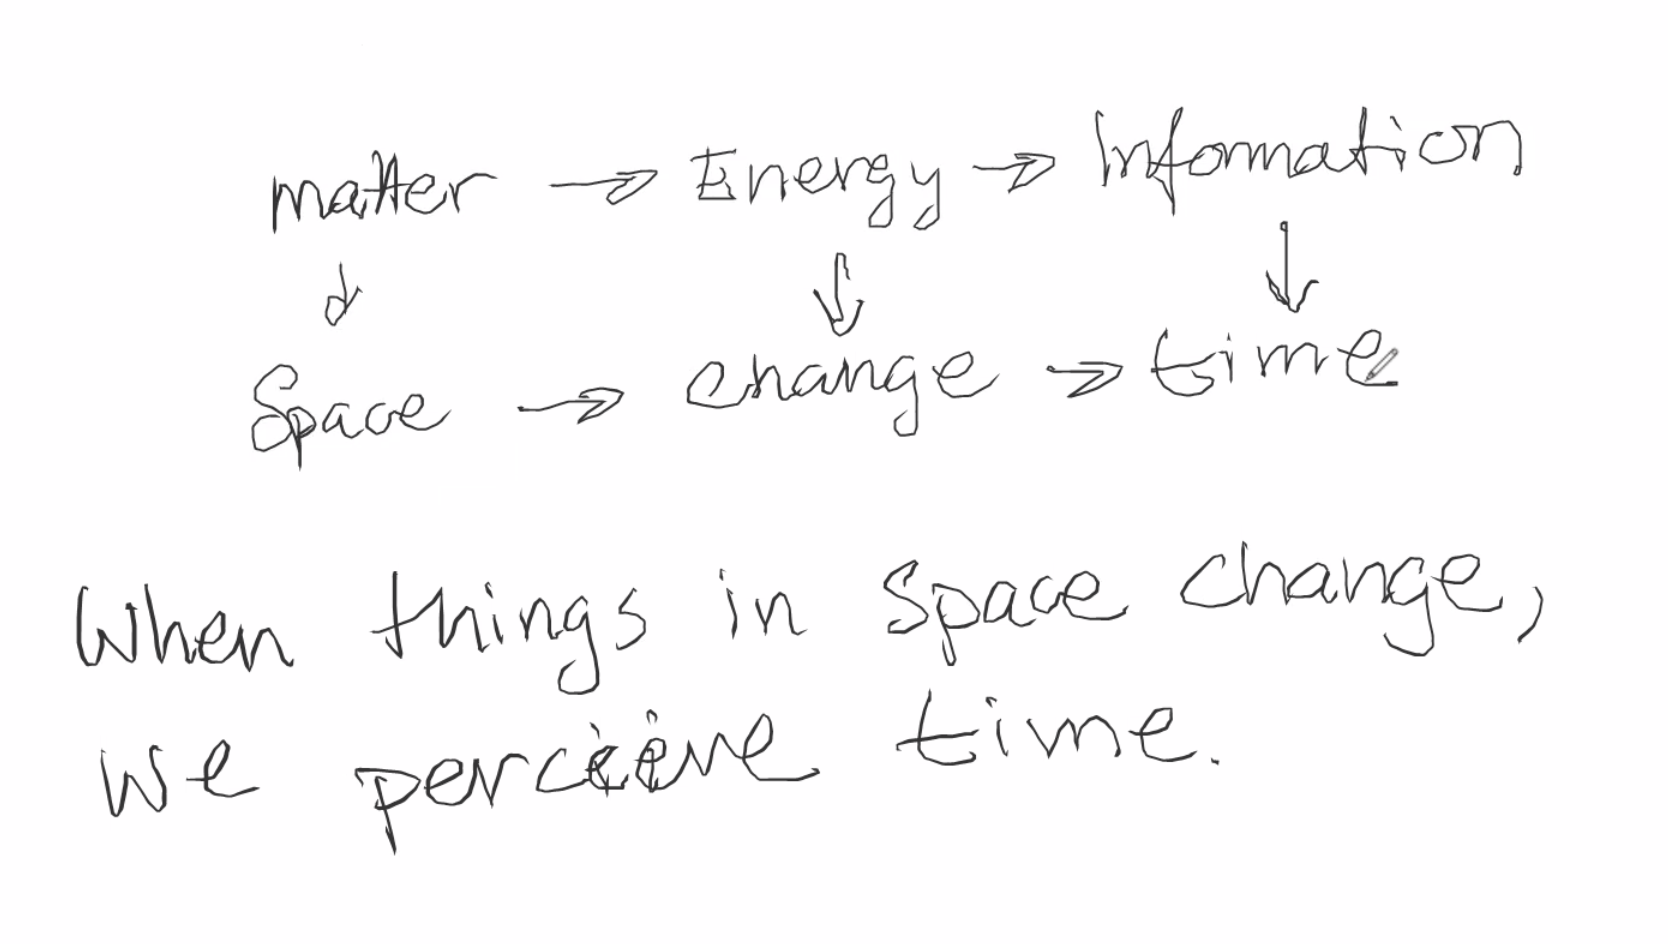 matter → Energy → Information
↓ ↓ ↓
Space → change → time
When things in space change,
we perceive time.